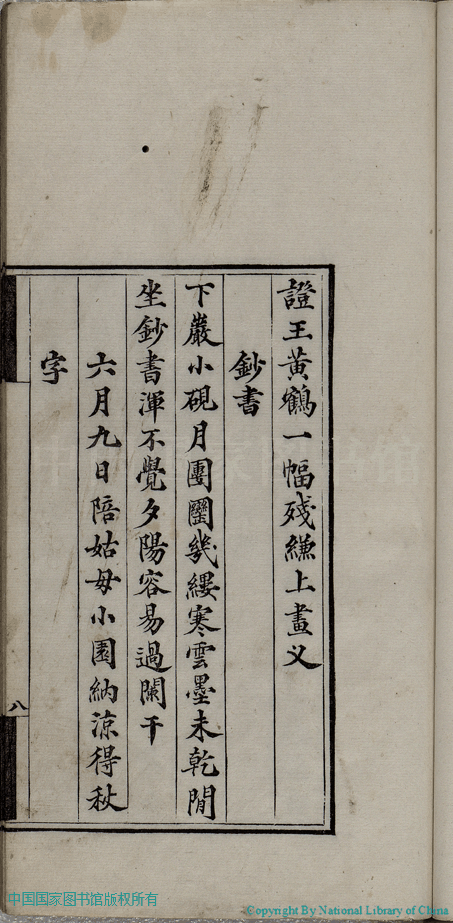 證王黃鶴一幅殘縑上畫义
鈔書
下巖小硯月團圞幾縷寒雲墨未乾閒
坐鈔書渾不覺夕陽容易過闌干
六月九日陪姑母小園納涼得秋
字
八
中国国家图书馆版权所有
©opyright By National Library of China